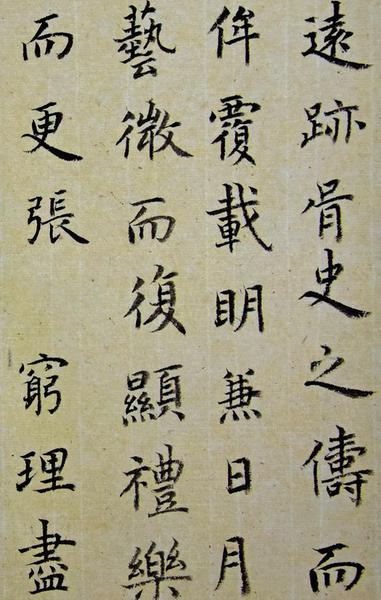 遠跡胥史之儔而
侔覆載眀兼日月
藝微而復顯禮樂
而更張 窮理盡